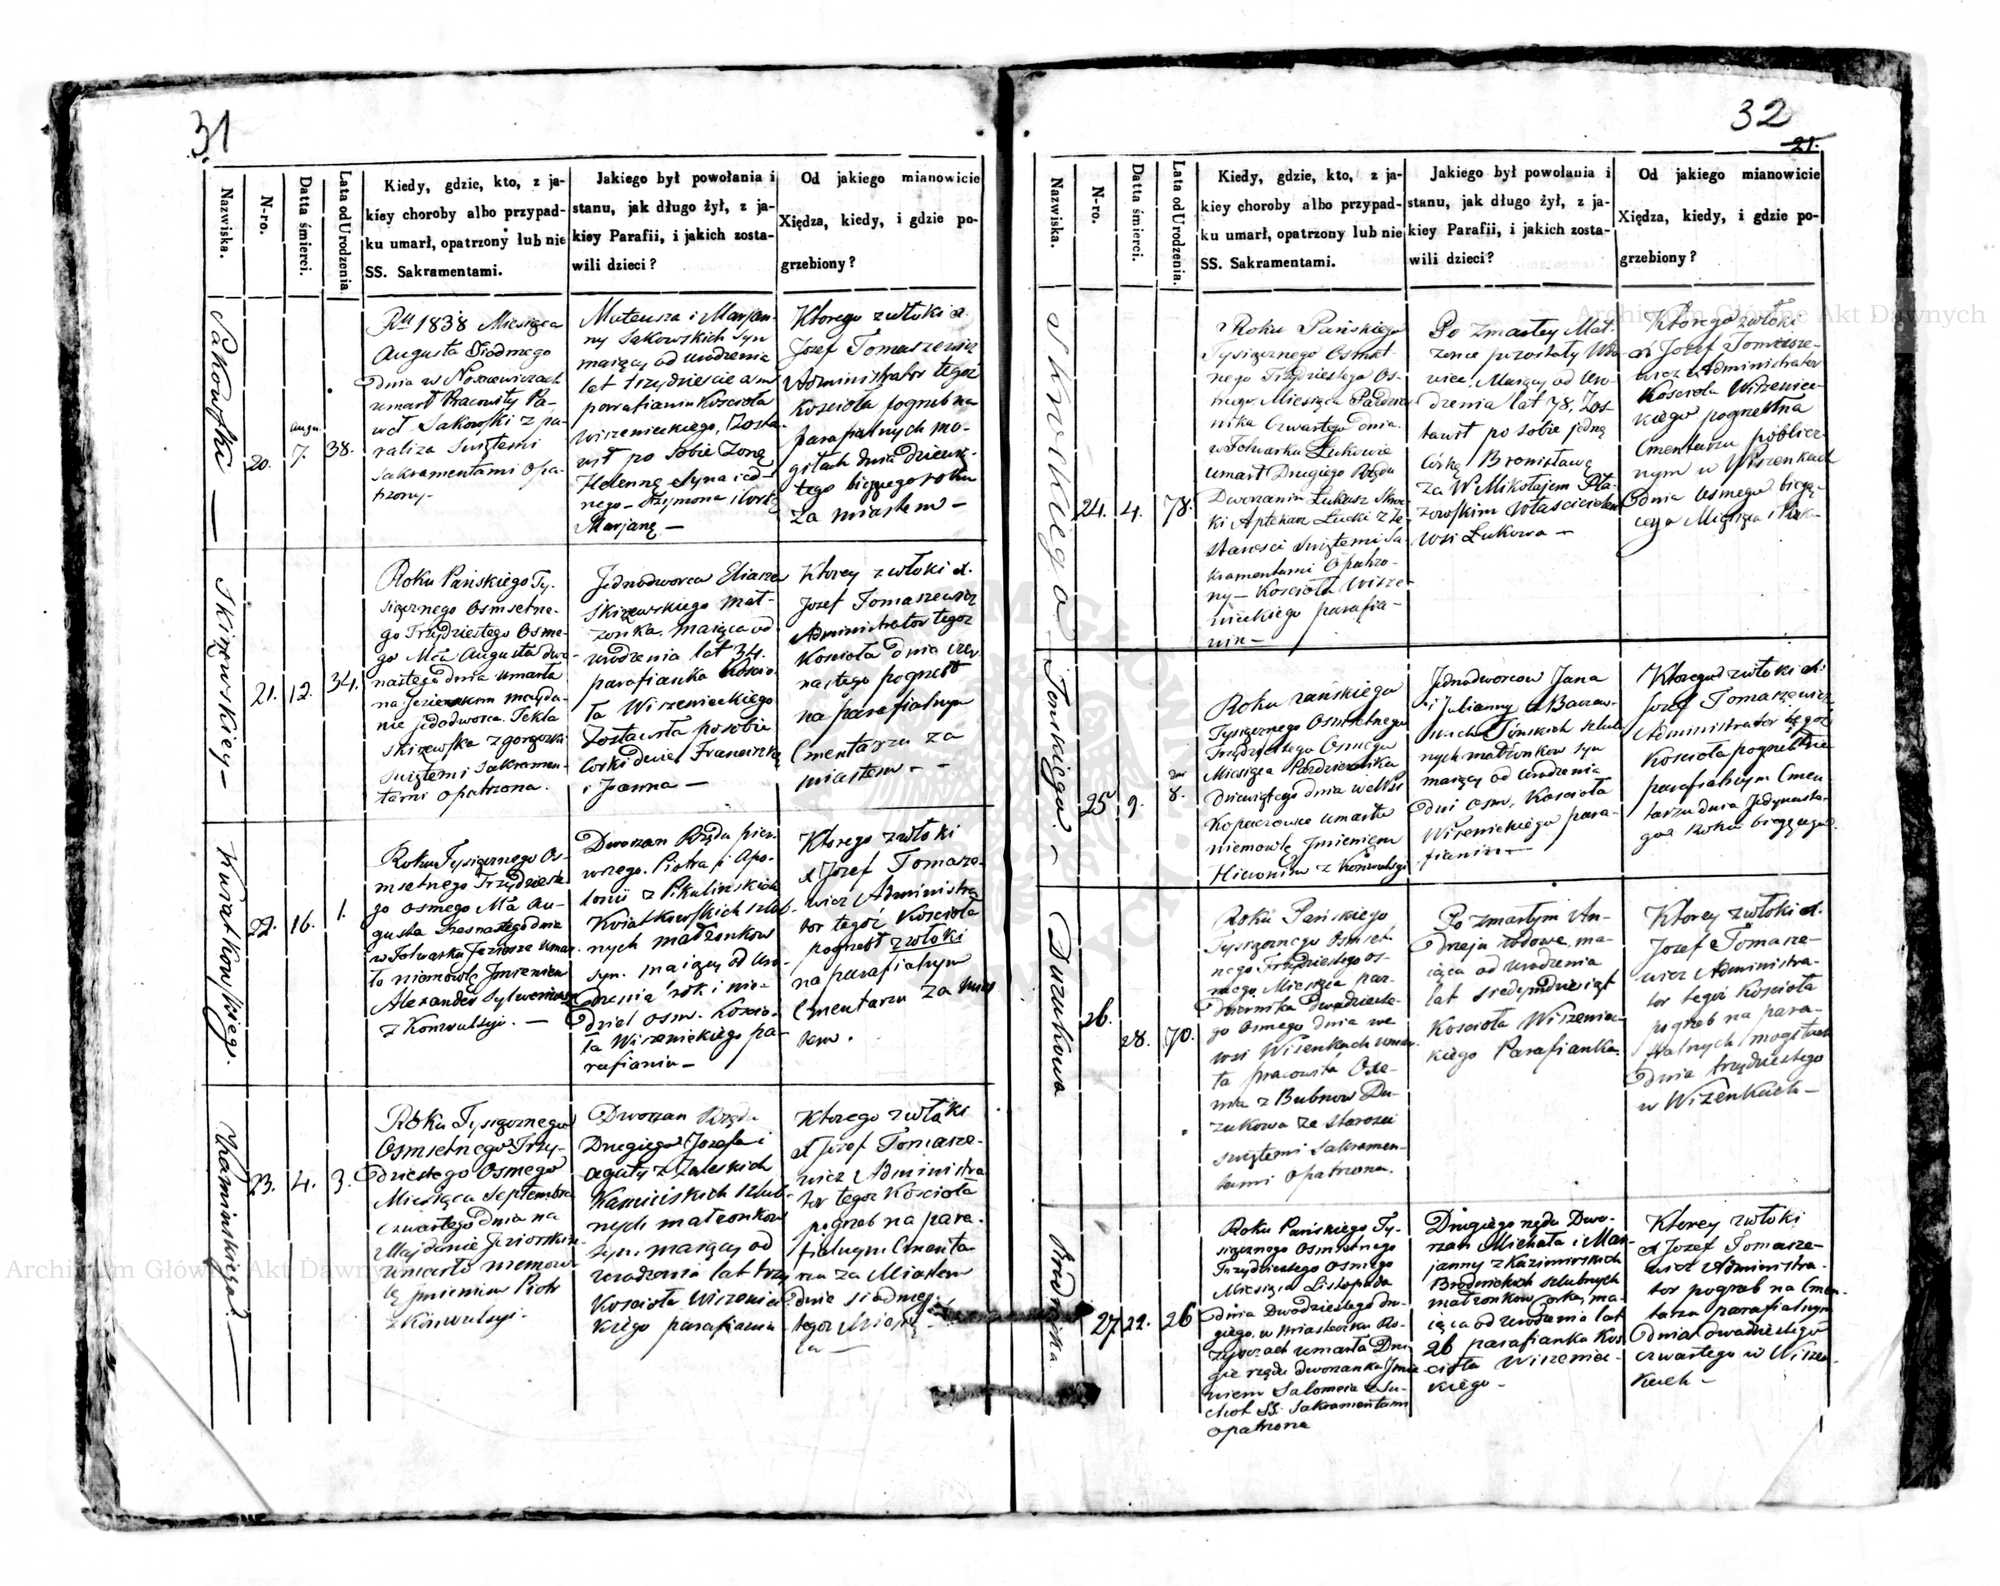 31
Nazwiska.
N-ro.
Datta śmierci.
Lata od Urodzenia.
Kiedy, gdzie, kto, z ja-
kiey choroby albo przypad-
ku umarł, opatrzony lub nie
SS. Sakramentami.
Jakiego był powołania i
stanu, jak długo żył, z ja-
kiey Parafii, i jakich zosta-
wili dzieci?
Od jakiego mianowicie
Xiędza, kiedy, i gdzie po-
grzebiony?
Sakowska
20.
augu.
7.
38.
1838 Miesięca
Augusta Siodmego
Dnia w Nosowiczach
umarł Pracowity Pa-
weł Sakowski z pa-
raliza Swiętemi
Sakramentami Opa-
trzony-
Mateusza i Maryan-
ny Sakowskich syn
maiący od urodzenia
lat trzydzieście osm
parafianin Kościoła
Wiszenieckiego, Zosta-
wił po sobie Zonę
Helennę Syna jed-
nego Szymona i Corkę
Marjanę —
Ktorego zwłoki X.
Jozef Tomaszewicz
Administrator tegoż
Kościoła pogrueb na
parafialnych mo-
giłach dnia dziewię-
tego bieżącego roku
Za miastem —
Skirzewskiey
21.
12.
34.
Roku Pańskiego Ty-
siącznego Osmsetne-
go Trzydziestego Osme-
go Mca Augusta dwu-
nastego dnia umarła
na Jezierskim mayda-
nie jedodworca Tekla
Skirzewska z gorączki
swiętemi Sakramen-
tami opatrzona.
Jednodworca Eliasza
Skirzewskiego mał-
zonka. maiąca od
urodzenia lat 34.
parafianka Koscio-
ła Wiszenieckiego
Zostawiła po sobie
Corki dwie Franciszkę
i Joanna —
Ktorey zwłoki X.
Jozef Tomaszewicz
Administrator tegoz
Kościoła dnia czter
nastego pogrzebł
na parafialnym
Cmentarzu za
miastem - -
Kwiatkowskiego.
22.
16.
1.
Roku Tysiącznego Os-
msetnego Trzydzieste
go osmego Mca Au-
gusta Szesnastego dnia
w Folwarku Jeziorze umar-
ło niemowlę Imieniem
Alexander Sylweriusz
z Konwulsyi. —
Dworzan Rzędu pier-
wszego. Piotra i Apo-
lonii z Pikulińskich
Kwiatkowskich szlub-
nych małzonkow
syn. maiący od uro-
dzenia rok i nie-
dziel osm. Kościo-
ła Wiszenieckiego pa-
rafianin —
Ktorego zwłoki
X Jozef Tomasze-
wicz Administra
tor tegoż Kościoła
pogrzebł zwłoki
na parafialnym
Cmentarzu za mias
tem.
Khaminskiego.
23.
4.
3.
Roku Tysiącznego
Osmsetnego Trzy-
dziestego Osmego
Miesiąca Septembra
czwartego dnia na
Maydanie Jeziorskim
umarło niemow
lę imieniem Piotr
z Konwulsyi.
Dworzan Rzędu
Drugiego Jozefa i
Agaty z Zaleskich
Kamińskich szlub-
nych małzonkow
syn. maiący od
urodzenia lat trzy
Kościoła Wiszenie
ckiego parafianin
Ktorego zwłoki
X Jozef Tomasze-
wicz Administra
tor tegoż Kościoła
pogrzeb na para-
fialnym Cmenta
rzu za Miastem
dnia siodmego
tegoż Miesią
ca —
32
21.
Nazwiska.
N-ro.
Datta śmierci.
Lata od Urodzenia.
Kiedy, gdzie, kto, z ja-
kiey choroby albo przypad-
ku umarł, opatrzony lub nie
SS. Sakramentami.
Jakiego był powołania i
stanu, jak długo żył, z ja-
kiey Parafii, i jakich zosta-
wili dzieci?
Od jakiego mianowicie
Xiędza, kiedy, i gdzie po-
grzebiony?
Skockiego
24.
4.
78.
Roku Pańskiego
Tysiącznego Osmset-
nego Trzydziestego Os-
mego, Miesiąca Paździer
nika Czwartego dnia.
w Folwarku Łukowie
umarł Drugiego Rzędu
Dworzanin Łukasz Skoc
ki Aptekarz Łucki z Ze
starosci Swiętemi Sa-
kramentami Opatrzo-
ny — Kościoła Wisze-
nieckiego parafia-
nin —
Po zmarłey Mał-
zonce pozostały Wdo
wiec, Maiący od Uro-
dzenia lat 78, Zos-
tawił po sobie jedną
Córkę Bronisławę
za W Mikołajem Gła-
zowskim Włascicielem
wsi Łukowa —
Ktorego zwłoki
X Jozef Tomasze-
wicz Administrator
Kościoła Wiszeniec-
kiego pogrzebł na
Cmentarzu publicz-
nym w Wiszenkach
dnia Osmego bieżą-
cego Miesięca i Roku
Tonskiego.
25
9.
dni
8.
Roku Pańskiego
Tysiącznego Osmsetnego
Trzydziestego Osmego
Miesiąca Października
dziewiątego dnia we Wsi
Kopaczowce umarła
niemowlę Imieniem
Hieronim z Konwulsyi
Jednodworcow Jana
i Julianny z Baczew-
skich Tońskich szlub
nych małżonkow syn
maiący od Urodzenia
dni osm, Kościoła
Wiszenieckiego para-
fianin —
Ktorego zwłoki X.
Jozef Tomaszewicz
Administrator tegoż
Kościoła pogrzebł na
parafialnym Cmen
tarzu dnia Jedynasta-
go Roku bieżącego.
Duzukowa
26.
28.
70.
Roku Pańskiego
Tysiącznego Osmset-
nego Trzydziestego os-
mego Miesiąca paz-
dziernika Dwudzieste-
go osmego dnia we
wsi Wiszenkach umar-
ła pracowita Oxe-
nia z Bubnow Du-
zukowa ze starosci
swiętemi Sakramen-
tami opatrzona.
Po zmarłym An-
drzeju wdowa, ma-
iąca od urodzenia
lat siedymdziesiąt
Kościoła Wiszeniec-
kiego Parafianka.
Ktorey zwłoki X.
Jozef Tomasze-
wicz Administra-
tor tegoż Kościoła
pogrzeb na para-
fialnych mogiłach
Dnia trzydziestego
w Wiszenkach —
Brodnicka
27.
22.
26
Roku Pańskiego Ty-
siącznego osmsetnego
Trzydziestego Osmego
Miesiąca Listopada
dnia Dwudziestego dru-
giego, w Miasteczku Ro-
zyszczach umarła Dru-
giego rzędu dworzanka Jmie
niem Salomeia z Su-
chot SS. Sakramentami
opatrzona
Drugiego rzędu Dwo-
rzan Michała i Mar-
janny z Kazimirskich
Brodnickich szlubnych
małzonkow corka, ma-
iąca od urodzenia lat
26 parafianka Koś-
cioła Wiszeniec-
kiego —
Ktorey zwłoki
X Jozef Tomasze-
wicz Administra-
tor pogrzeb na Cmen-
tarzu parafialnym
Dnia dwudziestego
czwartego w Wiszen-
kach —
Archiwum Główne Akt Dawnych
Archiwum Główne Akt Dawnych